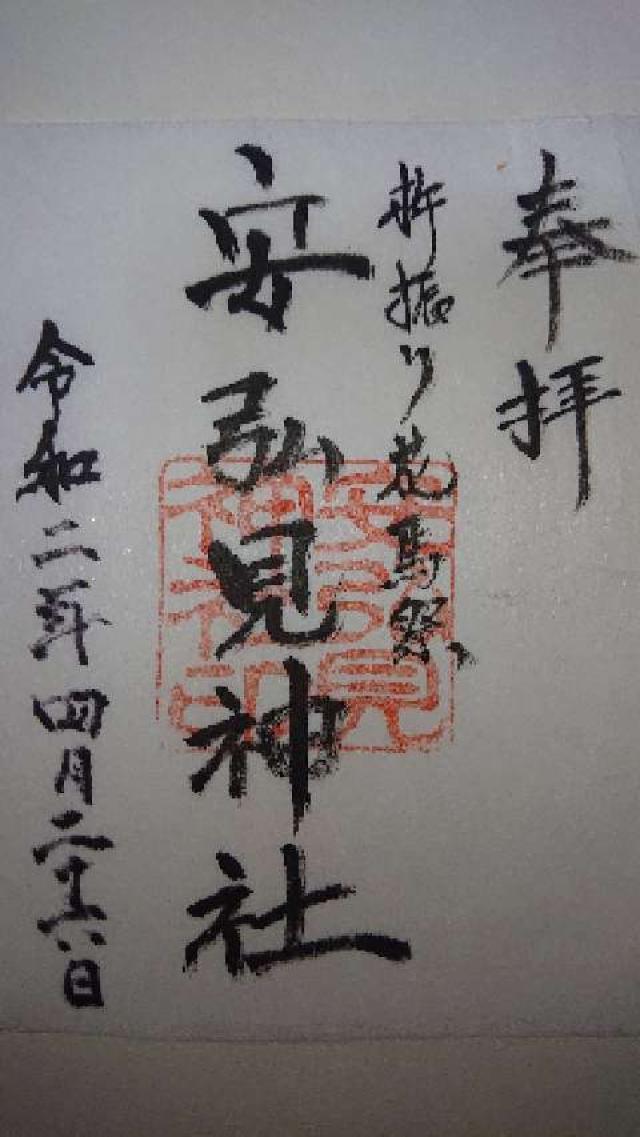 奉拝
杵振り花馬祭
安弘見神社
安弘見神社印
令和二年四月二十六日